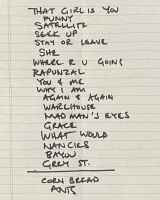 THAT GIRL IS YOU
FUNNY
SATELLITE
SEEK UP
STAY OR LEAVE
SHE
WHERE R U GOING
RAPUNZAL
YOU & ME
WHY I AM
AGAIN & AGAIN
WAREHOUSE
MAD MAN'S EYES
GRACE
WHAT WOULD
NANCIES
BAYOU
GREY ST.
CORN BREAD
ANTS